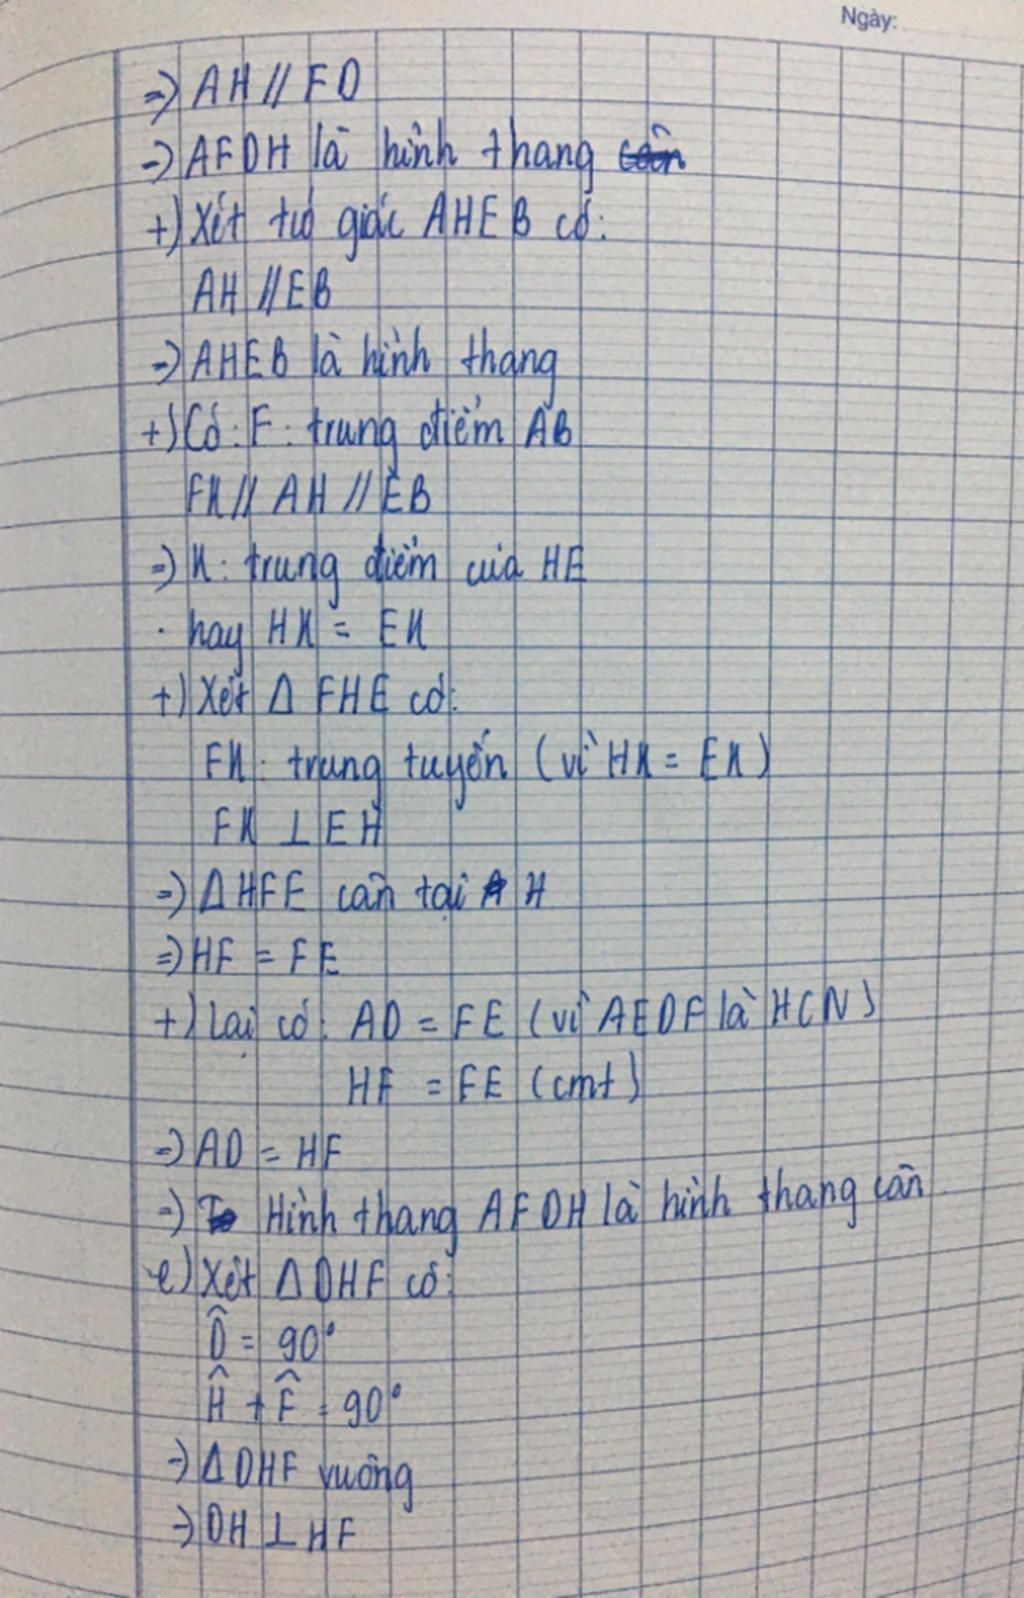 Ngày:
=) AH // FD
=) AFDH là hình thang
+) Xét tứ giác AHEB có:
AH // EB
=) AHEB là hình thang
+) Có: F: trung điểm AB
FK // AH // EB
=) K: trung điểm của HE
hay HK = EK
+) Xét Δ FHE có:
FK: trung tuyến (vì HK = EK)
FK ⊥ EH
=) Δ HFE cân tại H
=) HF = FE
+) Lại có: AD = FE (vì AEDF là HCN)
HF = FE (cmt)
=) AD = HF
=) Hình thang AFDH là hình thang cân
e) Xét Δ DHF có:
D̂ = 90°
Ĥ + F̂ = 90°
=) Δ DHF vuông
=) DH ⊥ HF